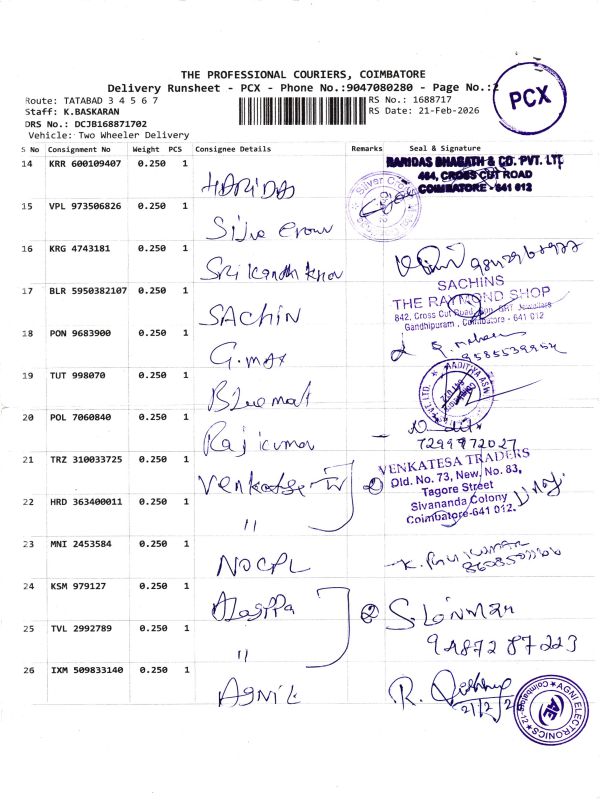 THE PROFESSIONAL COURIERS, COIMBATORE
Delivery Runsheet - PCX - Phone No.:9047080280 - Page No.:2
PCX
Route: TATABAD 3 4 5 6 7
RS No.: 1688717
Staff: K.BASKARAN
RS Date: 21-Feb-2026
DRS No.: DCJB168871702
Vehicle: Two Wheeler Delivery
S No Consignment No Weight PCS Consignee Details Remarks Seal & Signature
14 KRR 600109407 0.250 1 HARIDAS
HARIDAS BHAGATH & CO. PVT. LTD.
464, CROSS CUT ROAD
COIMBATORE - 641 012
15 VPL 973506826 0.250 1
16 KRG 4743181 0.250 1
17 BLR 5950382107 0.250 1 SACHIN
SACHINS
THE RAYMOND SHOP
842, Cross Cut Road, Opp. GRT Jewellers
Gandhipuram, Coimbatore - 641 012
18 PON 9683900 0.250 1 G.max
9585539954
19 TUT 998070 0.250 1
20 POL 7060840 0.250 1 Rajkumar
7299972027
21 TRZ 310033725 0.250 1 Venkatesa
VENKATESA TRADERS
Old. No. 73, New, No. 83,
Tagore Street
Sivananda Colony
Coimbatore-641 012.
22 HRD 363400011 0.250 1 "
23 MNI 2453584 0.250 1 NOCPL
24 KSM 979127 0.250 1
25 TVL 2992789 0.250 1 "
26 IXM 509833140 0.250 1 AGNI E
21/2/2
AGNI ELECTRONICS
Coimbatore-12
AE